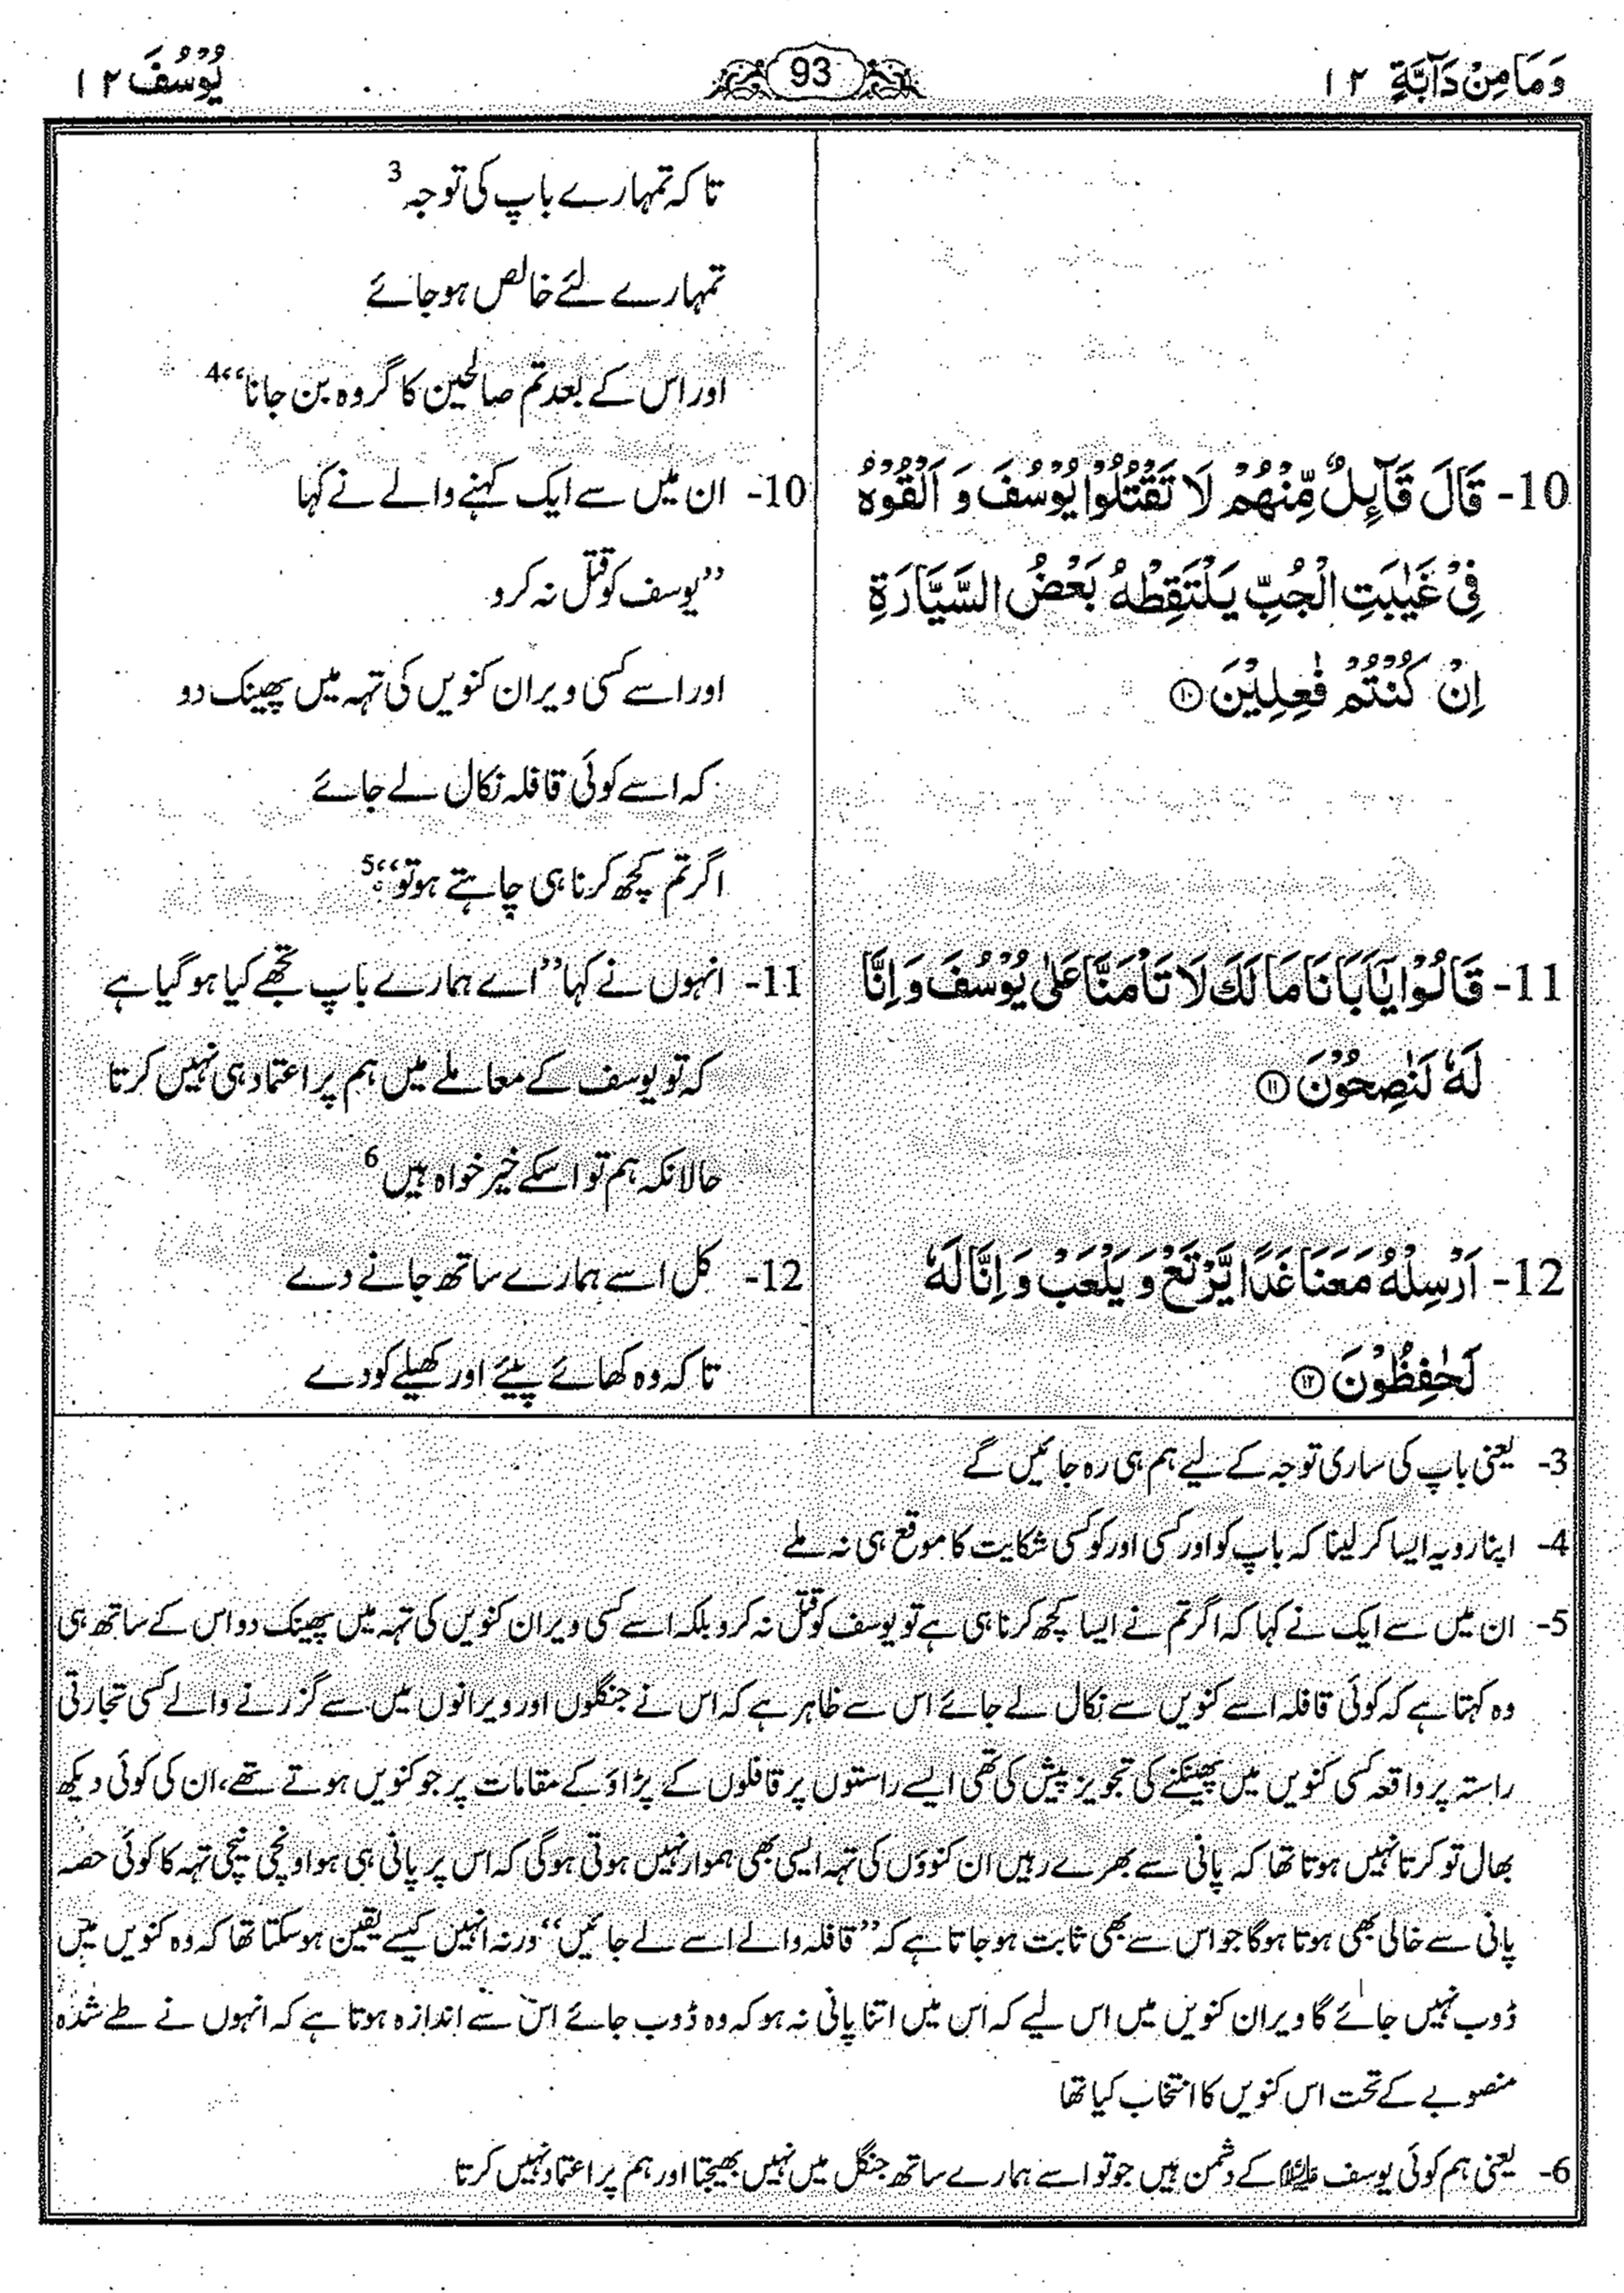 وَمَا مِنْ دَآبَّةٍ ۱۲
93
يُوْسُفَ ۱۲
تاکہ تمہارے باپ کی توجہ 3
تمہارے لئے خالص ہو جائے
اور اس کے بعد تم صالحین کا گروہ بن جانا‘‘4
10- قَالَ قَآئِلٌ مِّنْهُمْ لَا تَقْتُلُوْا يُوْسُفَ وَ اَلْقُوْهُ
فِىْ غَيٰبَتِ الْجُبِّ يَلْتَقِطْهُ بَعْضُ السَّيَّارَةِ
اِنْ كُنْتُمْ فٰعِلِيْنَ ⑩
10- ان میں سے ایک کہنے والے نے کہا
’’یوسف کو قتل نہ کرو
اور اسے کسی ویران کنویں کی تہہ میں پھینک دو
کہ اسے کوئی قافلہ نکال لے جائے
اگر تم کچھ کرنا ہی چاہتے ہو تو‘‘5
11- قَالُوْا يٰٓاَبَانَا مَا لَكَ لَا تَاْمَنَّا عَلٰى يُوْسُفَ وَ اِنَّا
لَهٗ لَنٰصِحُوْنَ ⑪
11- انہوں نے کہا ’’اے ہمارے باپ تجھے کیا ہو گیا ہے
کہ تو یوسف کے معاملے میں ہم پر اعتماد ہی نہیں کرتا
حالانکہ ہم تو اسکے خیر خواہ ہیں 6
12- اَرْسِلْهُ مَعَنَا غَدًا يَّرْتَعْ وَ يَلْعَبْ وَ اِنَّا لَهٗ
لَحٰفِظُوْنَ ⑫
12- کل اسے ہمارے ساتھ جانے دے
تاکہ وہ کھائے پیئے اور کھیلے کودے
3- یعنی باپ کی ساری توجہ کے لیے ہم ہی رہ جائیں گے
4- اپنا رویہ ایسا کر لینا کہ باپ کو اور کسی اور کو کسی شکایت کا موقع ہی نہ ملے
5- ان میں سے ایک نے کہا کہ اگر تم نے ایسا کچھ کرنا ہی ہے تو یوسف کو قتل نہ کرو بلکہ اسے کسی ویران کنویں کی تہہ میں پھینک دو اس کے ساتھ ہی
وہ کہتا ہے کہ کوئی قافلہ اسے کنویں سے نکال لے جائے اس سے ظاہر ہے کہ اس نے جنگلوں اور ویرانوں میں سے گزرنے والے کسی تجارتی
راستہ پر واقعہ کسی کنویں میں پھینکنے کی تجویز پیش کی تھی ایسے راستوں پر قافلوں کے پڑاؤ کے مقامات پر جو کنویں ہوتے تھے، ان کی کوئی دیکھ
بھال تو کرتا نہیں ہوتا تھا کہ پانی سے بھرے رہیں ان کنوؤں کی تہہ ایسی بھی ہموار نہیں ہوتی ہوگی کہ اس پر پانی ہی ہو اونچی نیچی تہہ کا کوئی حصہ
پانی سے خالی بھی ہوتا ہوگا جو اس سے بھی ثابت ہو جاتا ہے کہ ’’قافلہ والے اسے لے جائیں‘‘ ورنہ انہیں کیسے یقین ہو سکتا تھا کہ وہ کنویں میں
ڈوب نہیں جائے گا ویران کنویں میں اس لیے کہ اس میں اتنا پانی نہ ہو کہ وہ ڈوب جائے اس سے اندازہ ہوتا ہے کہ انہوں نے طے شدہ
منصوبے کے تحت اس کنویں کا انتخاب کیا تھا
6- یعنی ہم کوئی یوسف علیہ السلام کے دشمن ہیں جو تو اسے ہمارے ساتھ جنگل میں نہیں بھیجتا اور ہم پر اعتماد نہیں کرتا